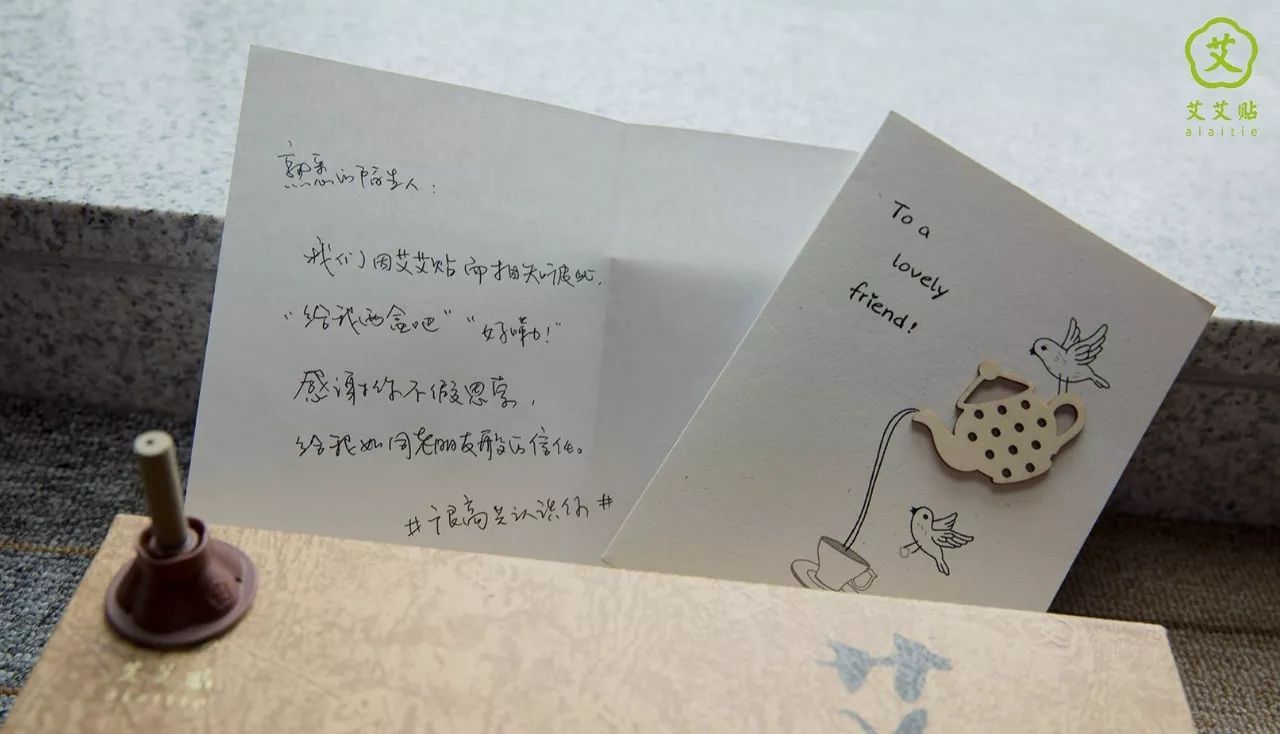 熟悉的陌生人：
我们因艾艾贴而相知彼此，
“给我两盒吧” “好嘞！”
感谢你不假思索，
给我如同老朋友般的信任。
#很高兴认识你#
To a
lovely
friend!
艾
艾艾贴
aiaitie
艾艾贴
aiaitie